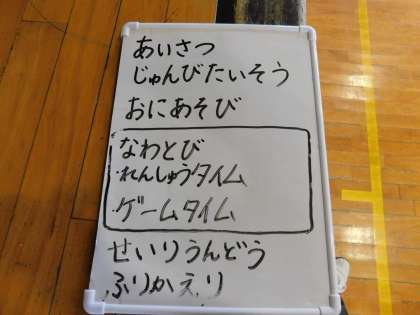 あいさつ
じゅんびたいそう
おにあそび
なわとび
・れんしゅうタイム
・ゲームタイム
せいりうんどう
ふりかえり